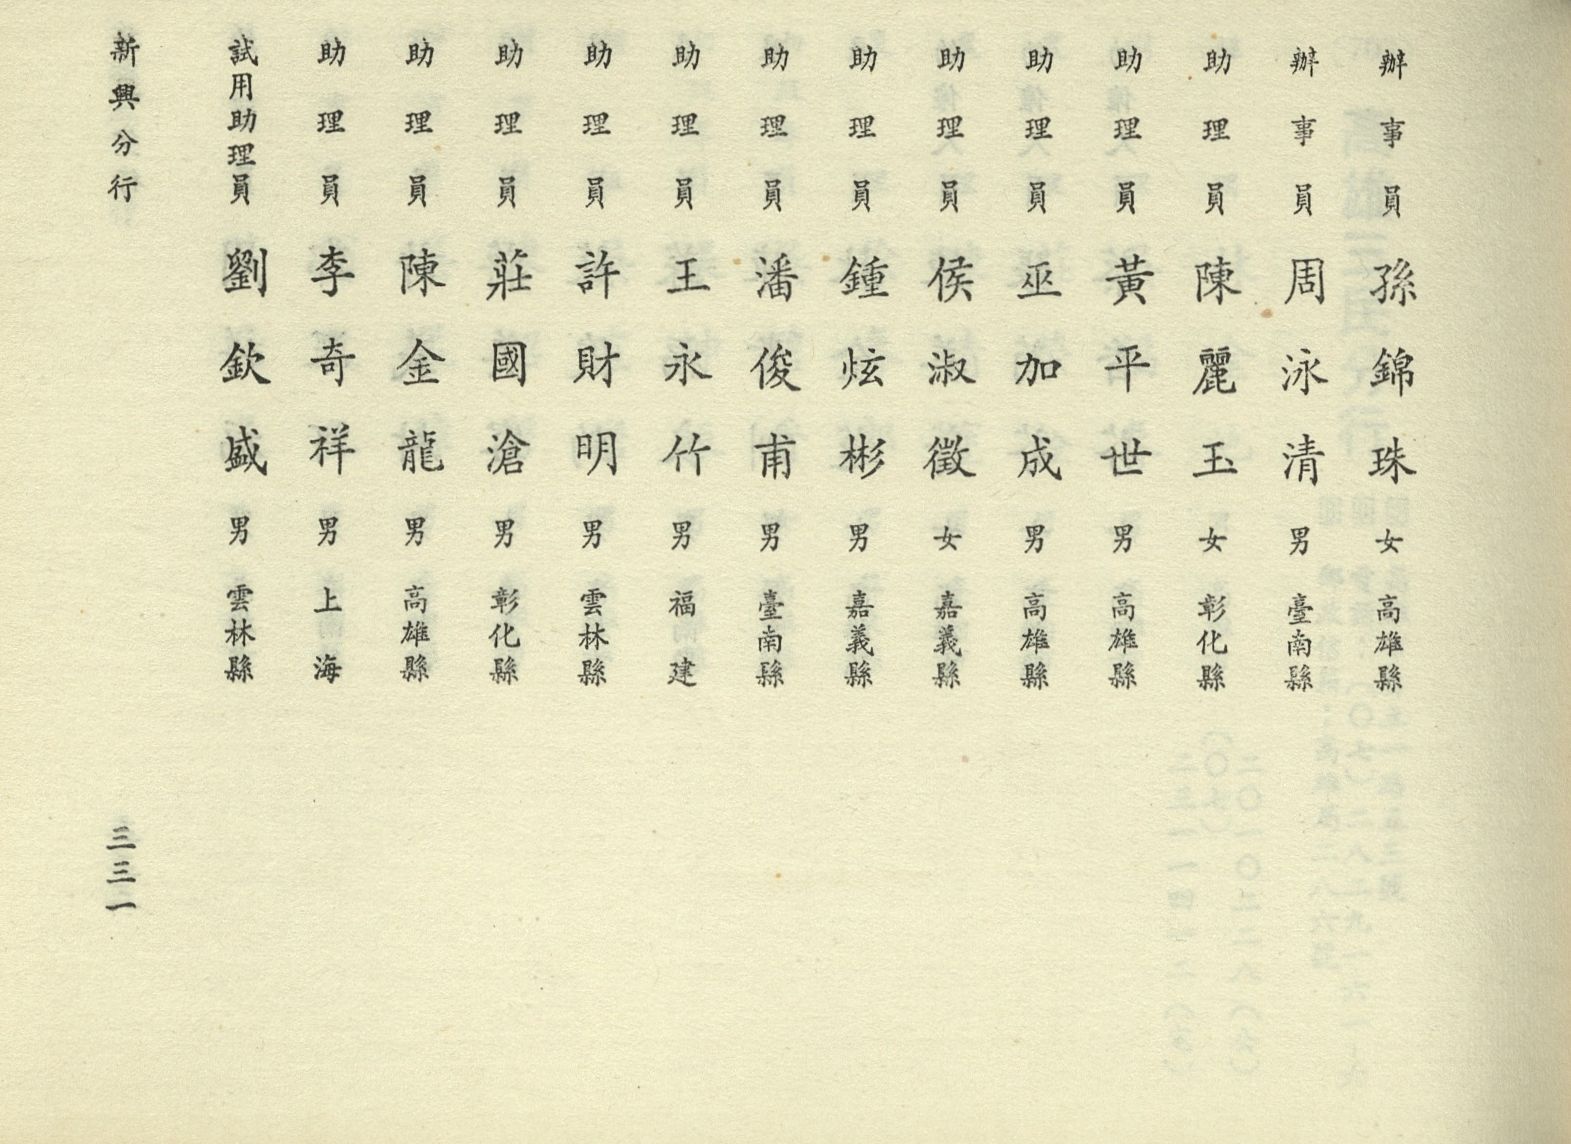 辦事員 孫錦珠 女 高雄縣
辦事員 周泳清 男 臺南縣
助理員 陳麗玉 女 彰化縣
助理員 黃平世 男 高雄縣
助理員 巫加成 男 高雄縣
助理員 侯淑徵 女 嘉義縣
助理員 鍾炫彬 男 嘉義縣
助理員 潘俊甫 男 臺南縣
助理員 王永竹 男 福建
助理員 許財明 男 雲林縣
助理員 莊國滄 男 彰化縣
助理員 陳金龍 男 高雄縣
助理員 李奇祥 男 上海
試用助理員 劉欽盛 男 雲林縣
新興分行 三三一